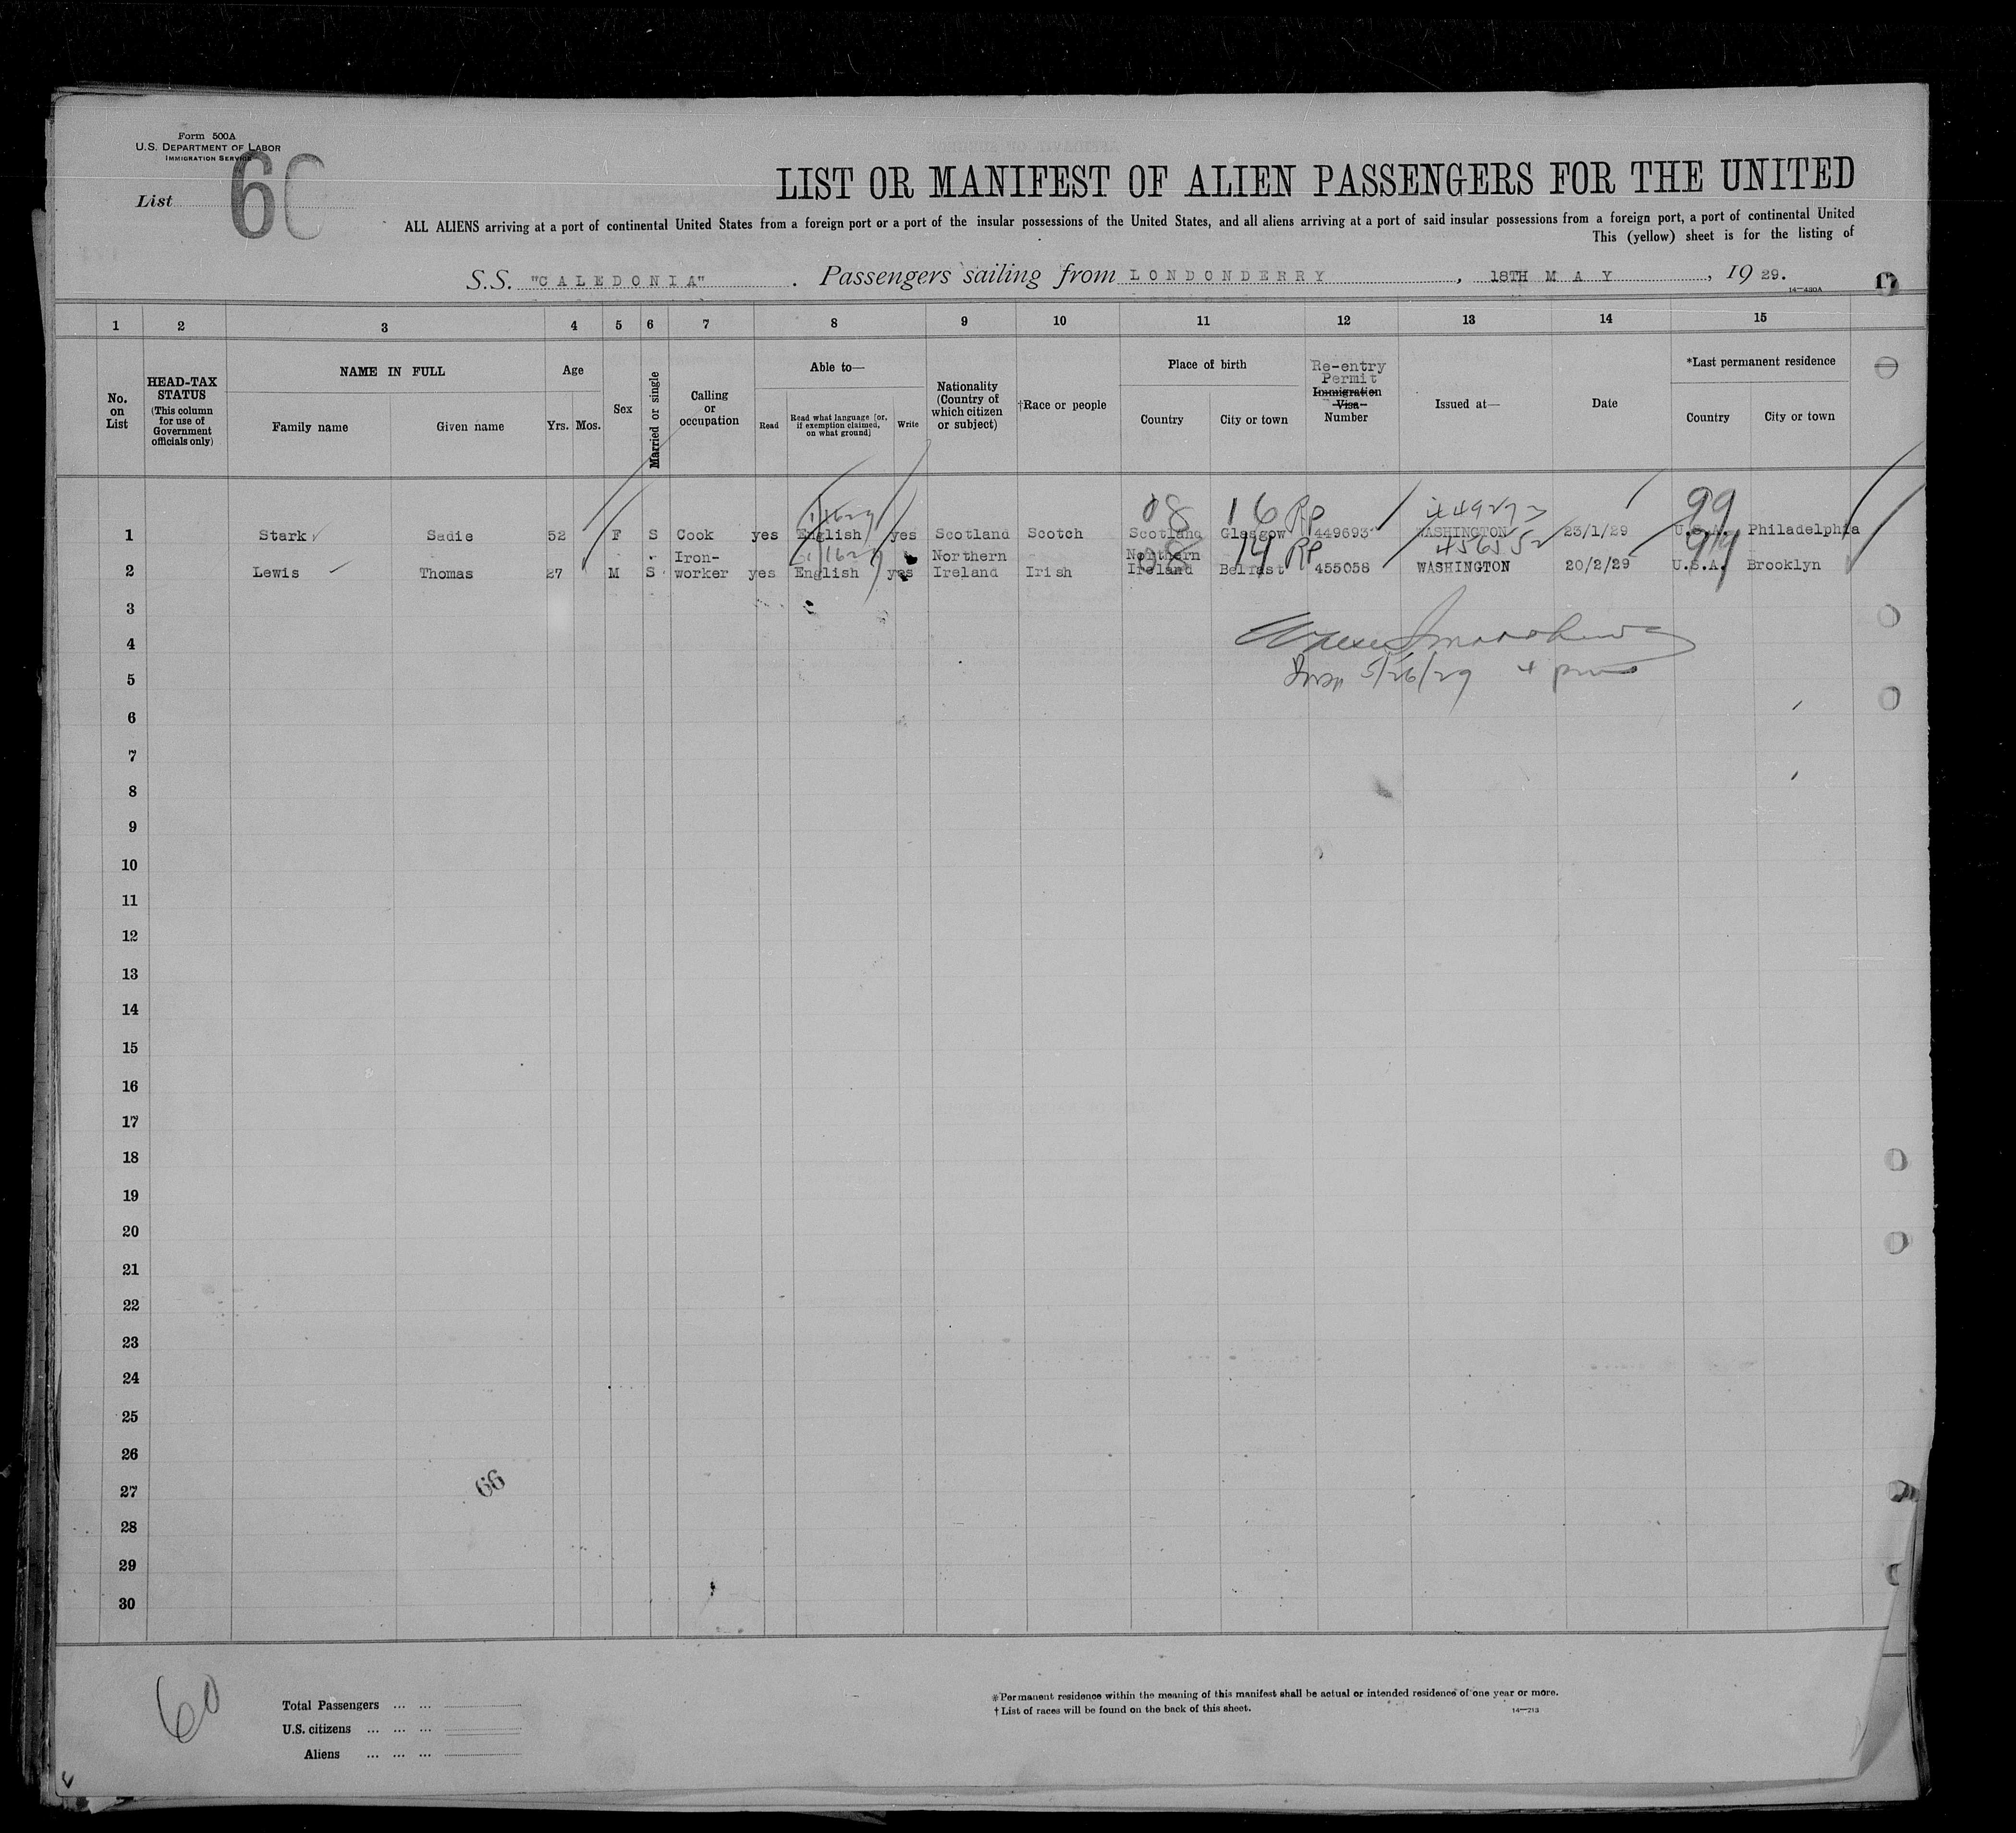 Form 500A
U.S. DEPARTMENT OF LABOR
IMMIGRATION SERVICE
List 60
LIST OR MANIFEST OF ALIEN PASSENGERS FOR THE UNITED
ALL ALIENS arriving at a port of continental United States from a foreign port or a port of the insular possessions of the United States, and all aliens arriving at a port of said insular possessions from a foreign port, a port of continental United
This (yellow) sheet is for the listing of
S.S. "CALEDONIA" . Passengers sailing from LONDONDERRY , 18TH MAY , 19 29.
14—430A
17
1 2 3 4 5 6 7 8 9 10 11 12 13 14 15
No. on List
HEAD-TAX STATUS (This column for use of Government officials only)
NAME IN FULL
Family name Given name
Age
Yrs. Mos.
Sex
Married or single
Calling or occupation
Able to—
Read Read what language [or, if exemption claimed, on what ground] Write
Nationality (Country of which citizen or subject)
†Race or people
Place of birth
Country City or town
Re-entry Permit
Immigration Visa Number
Issued at—
Date
*Last permanent residence
Country City or town
08 16 RP 99
1 Stark Sadie 52 F S Cook yes English yes Scotland Scotch Scotland Glasgow 449693 WASHINGTON 23/1/29 U.S.A. Philadelphia
08 14 RP 456552 99
2 Lewis Thomas 27 M S Iron-worker yes English yes Northern Ireland Irish Northern Ireland Belfast 455058 WASHINGTON 20/2/29 U.S.A. Brooklyn
3
4
5/26/29
5
6
7
8
9
10
11
12
13
14
15
16
17
18
19
20
21
22
23
24
25
26
66
27
28
29
30
60
Total Passengers ... ...
U.S. citizens ... ... ...
Aliens ... ... ...
*Permanent residence within the meaning of this manifest shall be actual or intended residence of one year or more.
†List of races will be found on the back of this sheet.
14—213